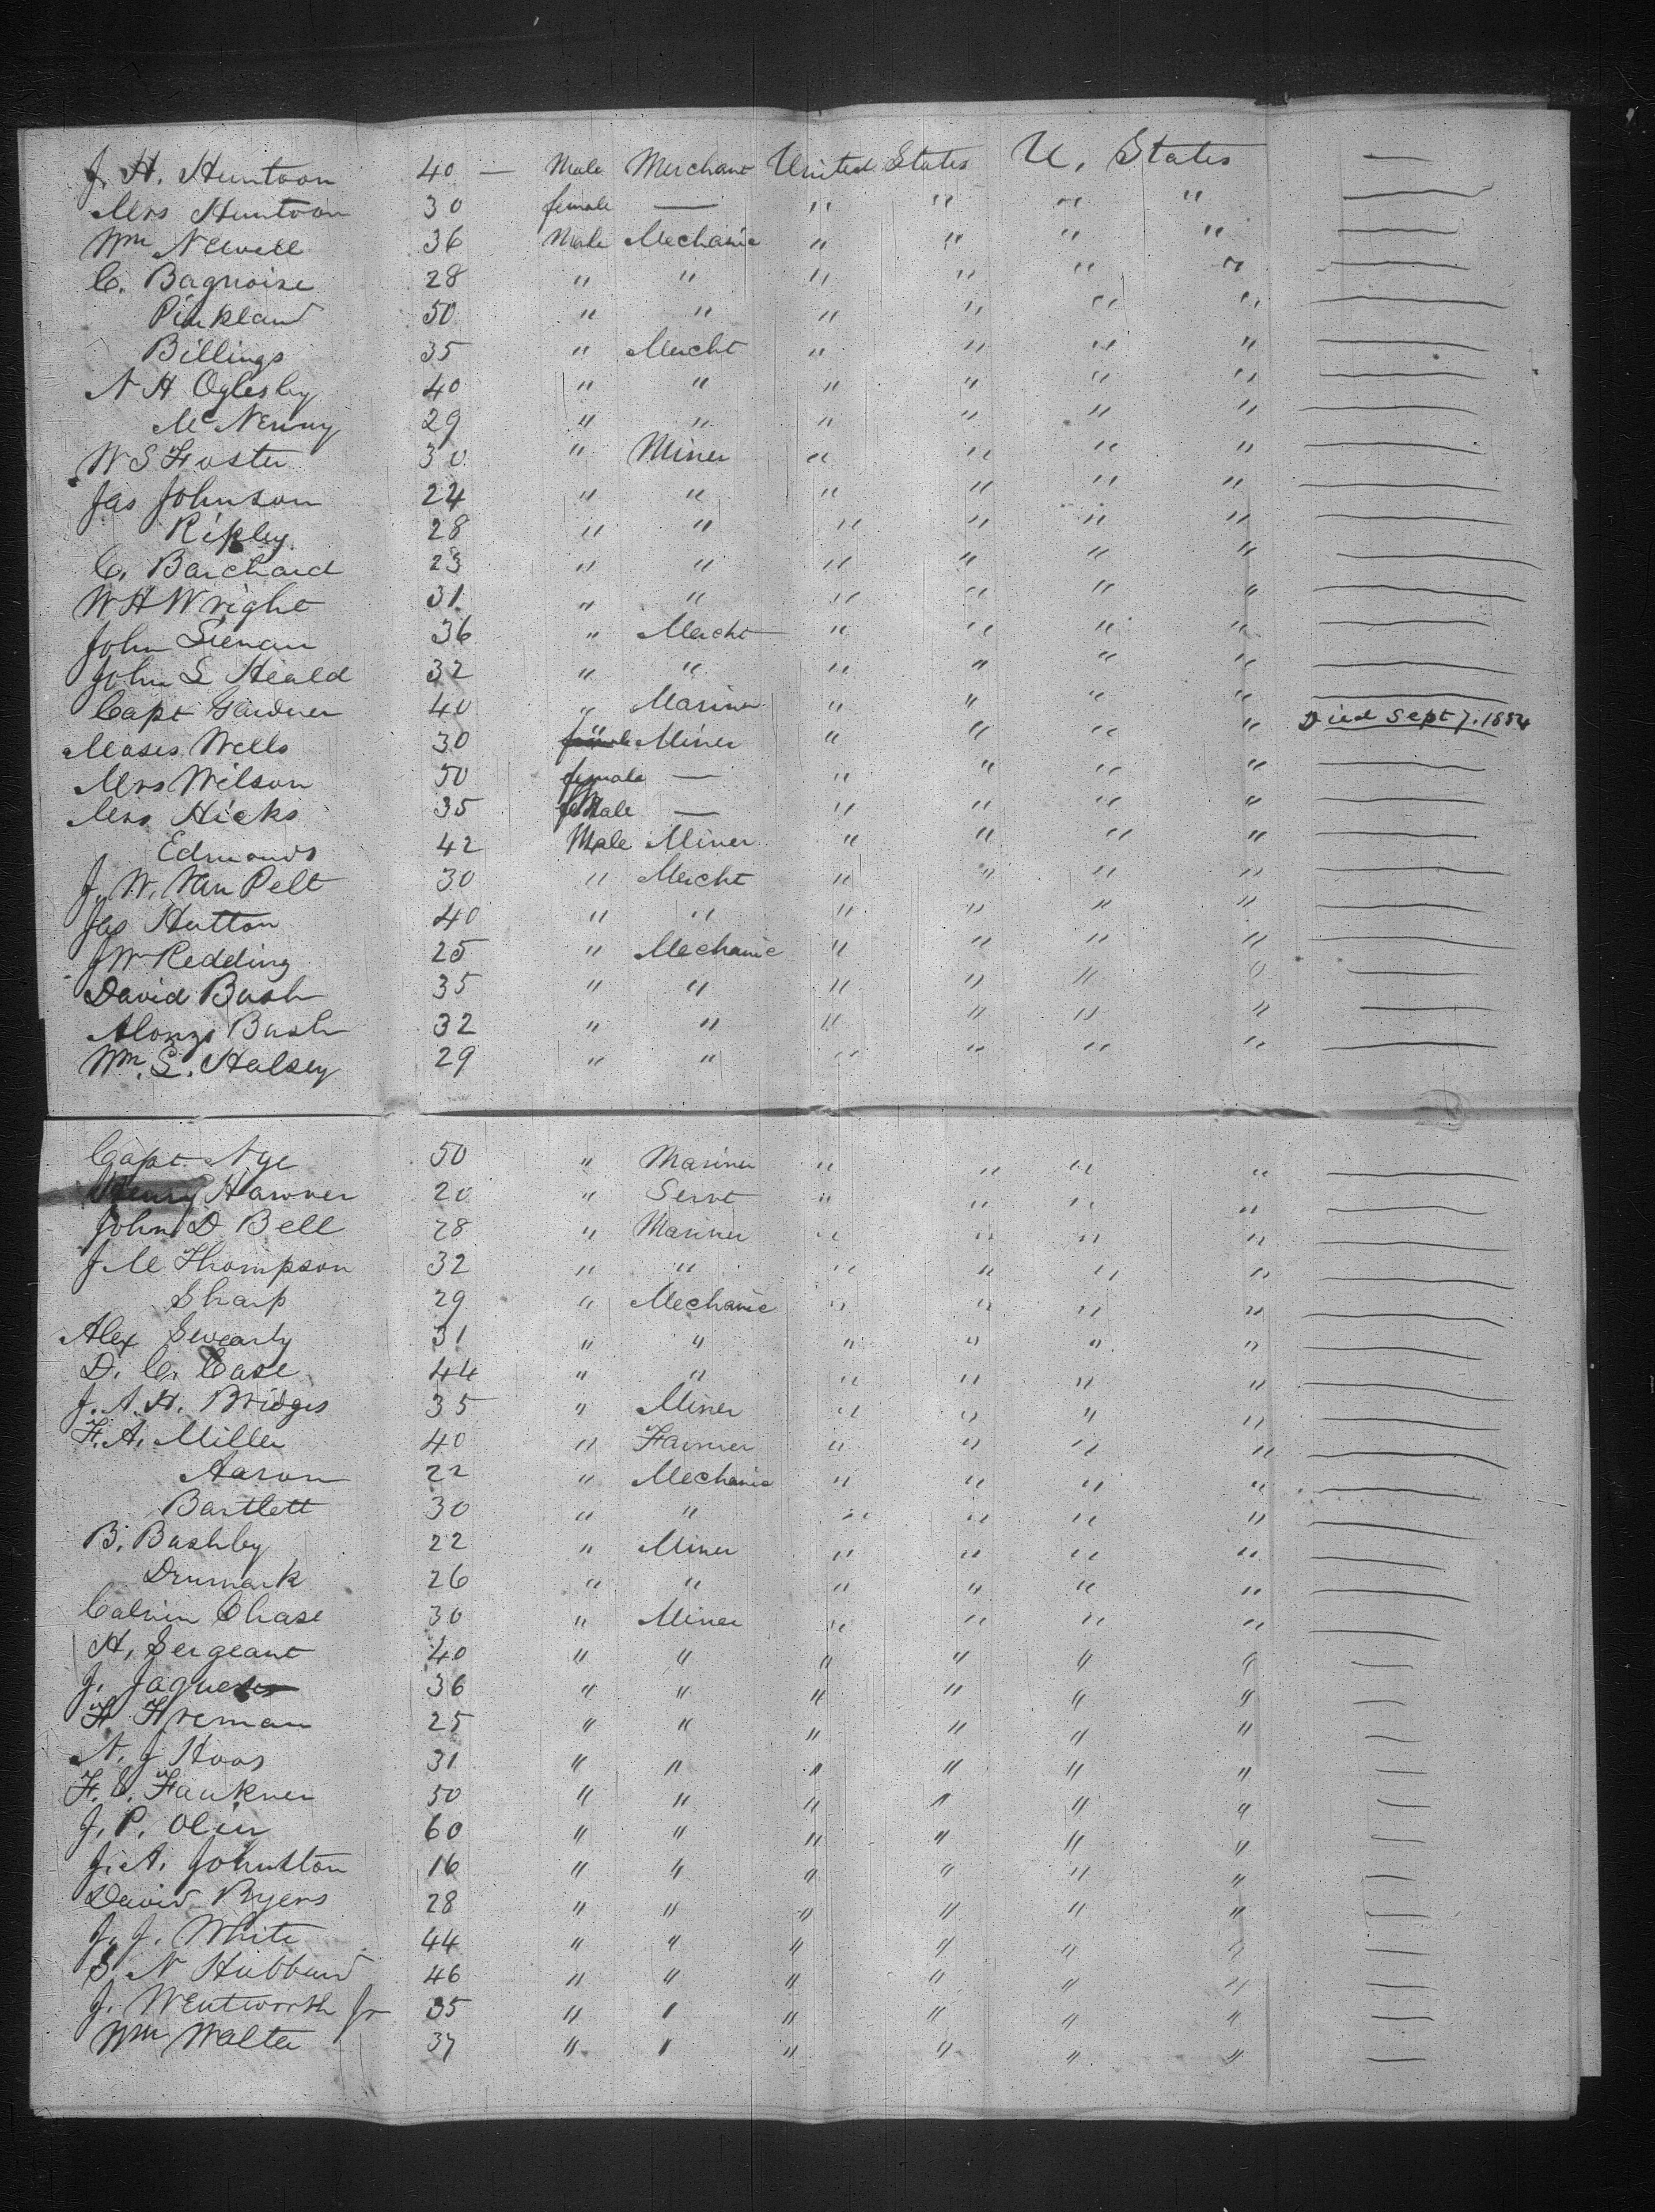 J. H. Huntoon 40 — Male Merchant United States U. States —
Mrs Huntoon 30 female — " " " " —
Wm Newell 36 Male Mechanic " " " " —
C. Bagnoise 28 " " " " " " —
Pinkland 50 " " " " " " —
Billings 35 " Mercht " " " " —
N H Oglesby 40 " " " " " " —
McNenny 29 " " " " " " —
W S Foster 30 " Miner " " " " —
Jas Johnson 24 " " " " " " —
Ripley 28 " " " " " " —
C. Barchard 23 " " " " " " —
W H Wright 31 " " " " " " —
John 36 " Mercht " " " " —
John S Heald 32 " " " " " " —
Capt Gardner 40 " Mariner " " " " —
Moses Wells 30 " Miner " " " " Died Sept 7. 1854
Mrs Wilson 50 female — " " " " —
Mrs Hicks 35 feMale — " " " " —
Edmonds 42 Male Miner " " " " —
J. W. Van Pelt 30 " Mercht " " " " —
Jas Hutton 40 " " " " " " —
J W Redding 25 " Mechanic " " " " —
David Bush 35 " " " " " " —
Alonzo Bush 32 " " " " " " —
Wm. S. Halsey 29 " " " " " " —
Capt. Nye 50 " Mariner " " " " —
Henry Harvner 20 " Servt " " " " —
John D Bell 28 " Mariner " " " " —
J M Thompson 32 " " " " " " —
Sharp 29 " Mechanic " " " " —
Alex Swearly 31 " " " " " " —
D. C. Case 44 " " " " " " —
J. A. H. Bridges 35 " Miner " " " " —
F. A. Miller 40 " Farmer " " " " —
Aaron 22 " Mechanic " " " " —
Bartlett 30 " " " " " " —
B. Bashby 22 " Miner " " " " —
Drumark 26 " " " " " " —
Calvin Chase 30 " Miner " " " " —
H. Sergeant 40 " " " " " " —
J. Jaques 36 " " " " " " —
F. Freman 25 " " " " " " —
N. J Hoos 31 " " " " " " —
F. C. Faukner 50 " " " " " " —
J. P. Olin 60 " " " " " " —
J. A. Johnston 16 " " " " " " —
David Byers 28 " " " " " " —
J. J. White 44 " " " " " " —
S. N Hubbard 46 " " " " " " —
J. Wentworth Jr 35 " " " " " " —
Wm Walter 37 " " " " " " —